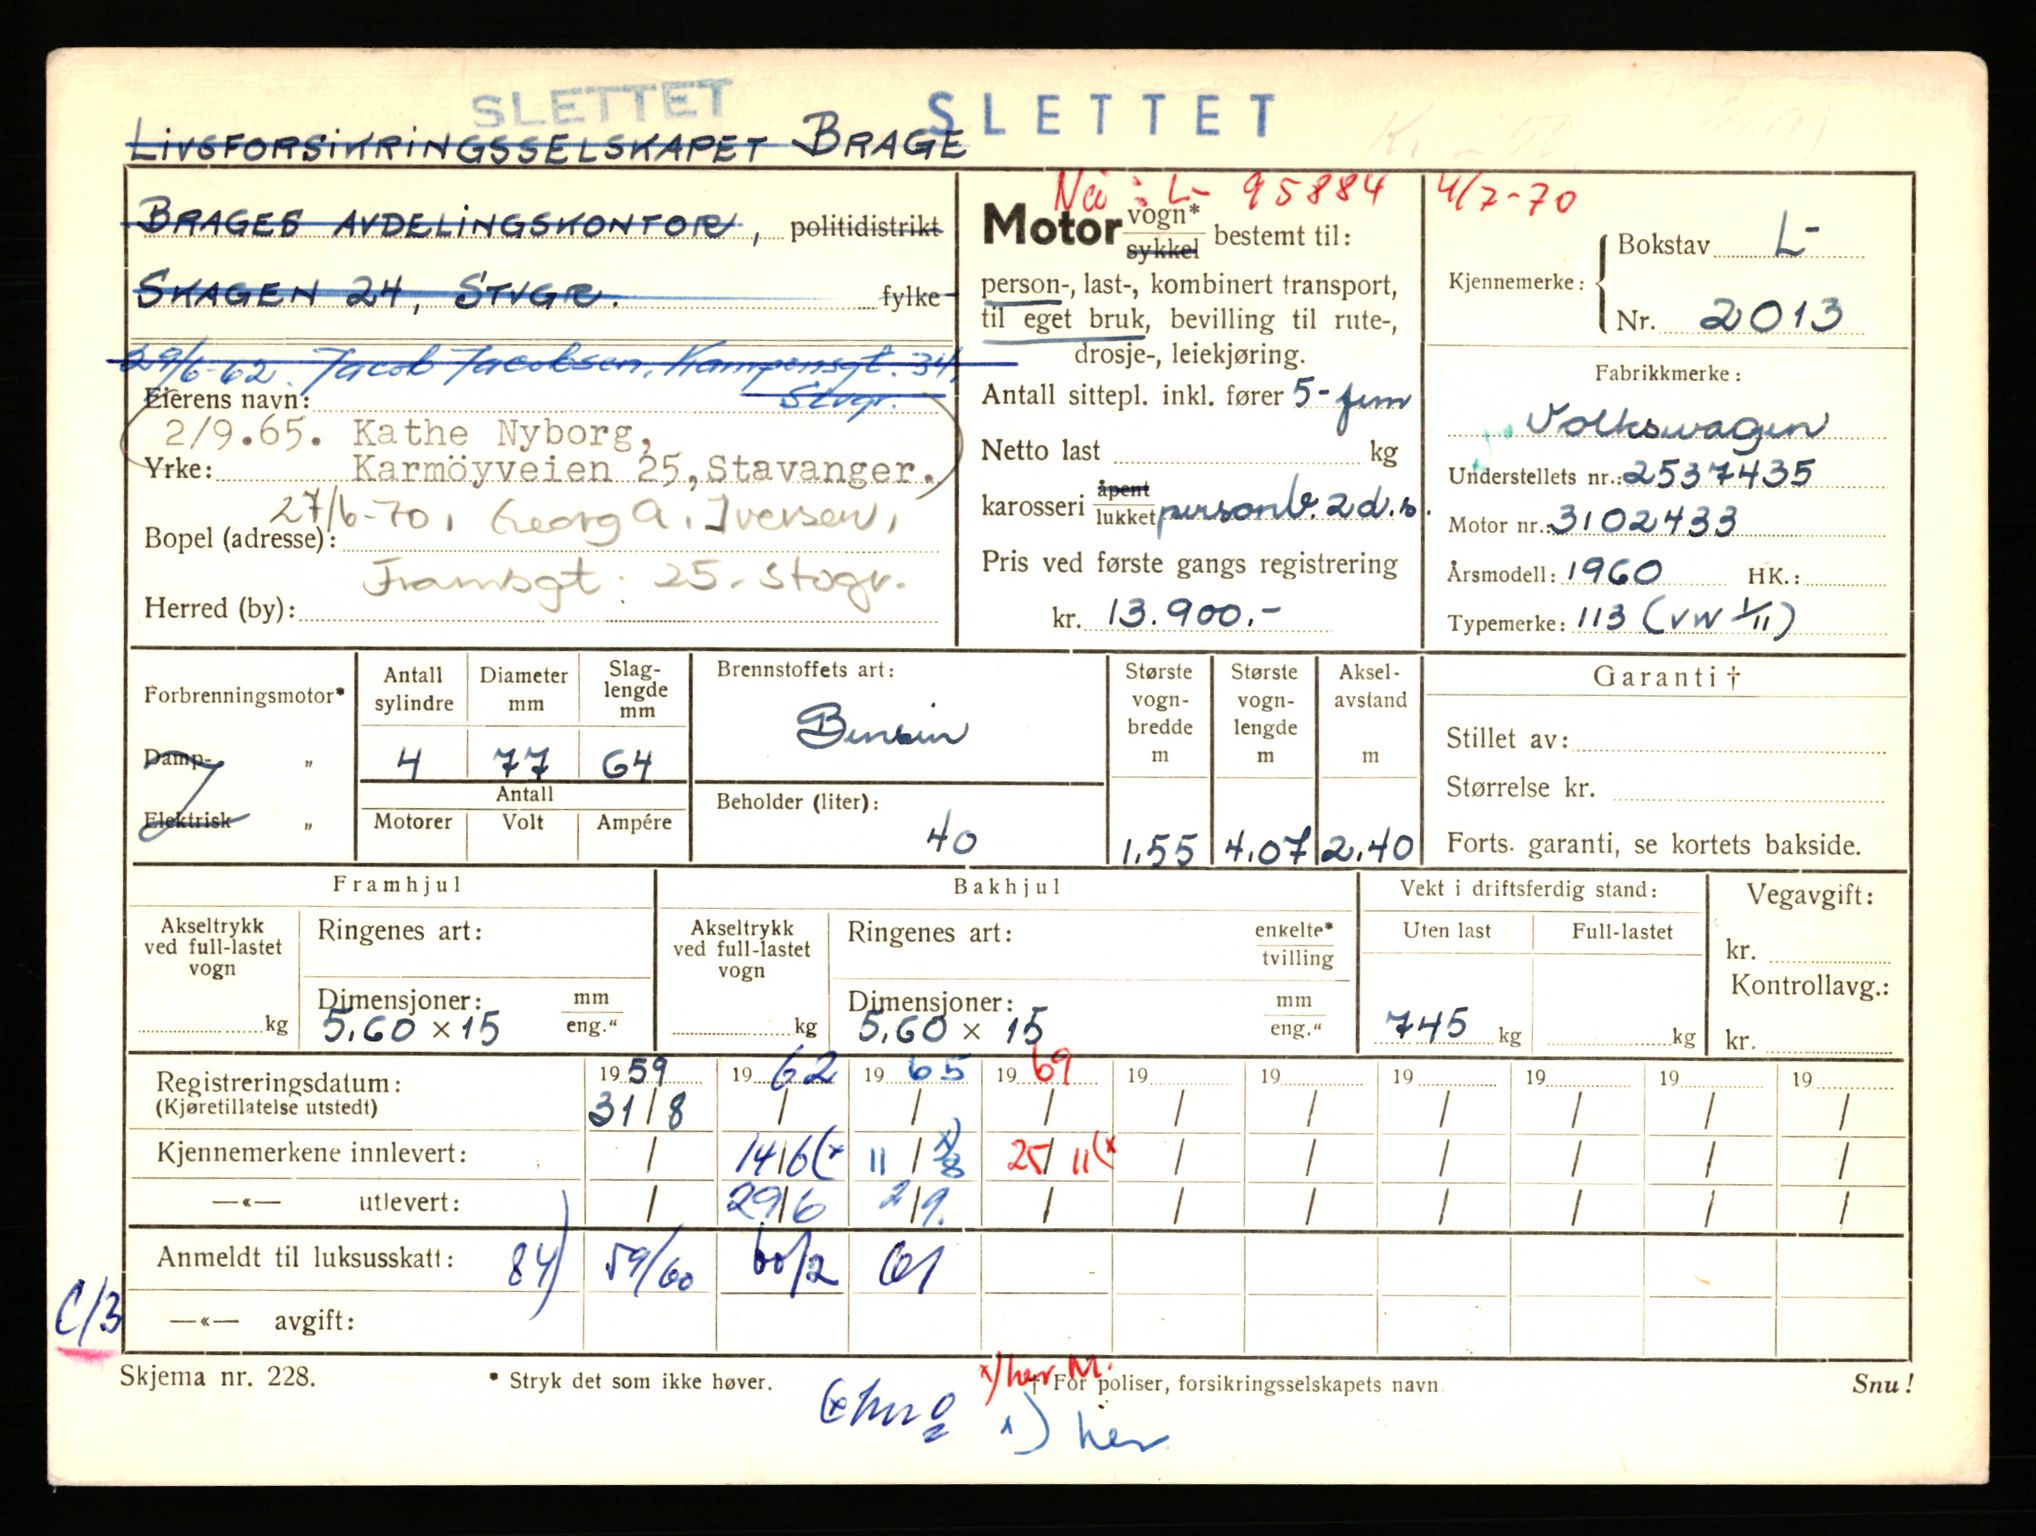 SLETTET SLETTET
LIVSFORSIKRINGSSELSKAPET BRAGE
BRAGES AVDELINGSKONTOR, politidistrikt
SKAGEN 24, STVGR. fylke
29/6-62. Jacob Jacobsen, Kampensgt. 34,
Stvgr.
Eierens navn:
2/9.65. Kathe Nyborg,
Yrke: Karmöyveien 25, Stavanger.
27/6-70, Georg A. Iversen,
Bopel (adresse):
Framsgt. 25. Stvgr.
Herred (by):
Nå: L- 95884 4/7-70
Motor vogn* sykkel bestemt til:
person-, last-, kombinert transport,
til eget bruk, bevilling til rute-,
drosje-, leiekjøring.
Antall sittepl. inkl. fører 5- fem
Netto last kg
karosseri åpent lukket personb. 2d.s.
Pris ved første gangs registrering
kr. 13.900.-
Kjennemerke: Bokstav L-
Nr. 2013
Fabrikkmerke:
Volkswagen
Understellets nr.: 2537435
Motor nr.: 3102433
Årsmodell: 1960 HK.:
Typemerke: 113 (VW 1/11)
Forbrenningsmotor*
Damp- „
Elektrisk „
Antall sylindre Diameter mm Slag-lengde mm
4 77 64
Antall
Motorer Volt Ampére
Brennstoffets art:
Bensin
Beholder (liter):
40
Største vogn-bredde m Største vogn-lengde m Aksel-avstand m
1.55 4.07 2.40
Garanti †
Stillet av:
Størrelse kr.
Forts. garanti, se kortets bakside.
Framhjul
Akseltrykk ved full-lastet vogn
kg
Ringenes art:
Dimensjoner: mm eng."
5.60 × 15
Bakhjul
Akseltrykk ved full-lastet vogn
kg
Ringenes art: enkelte* tvilling
Dimensjoner: mm eng."
5.60 × 15
Vekt i driftsferdig stand:
Uten last Full-lastet
745 kg kg
Vegavgift:
kr.
Kontrollavg.:
kr.
Registreringsdatum: 19 59 19 62 19 65 19 69 19 19 19 19 19 19
(Kjøretillatelse utstedt) 31/8 / / / / / / / / /
Kjennemerkene innlevert: / 14/6 (x 11/8 x) 25/11 (x / / / / / /
—«— utlevert: / 29/6 2/9. / / / / / / /
Anmeldt til luksusskatt: 84) 59/60 60/2 61
C/3
—«— avgift:
Skjema nr. 228. * Stryk det som ikke høver. x) her M. † For poliser, forsikringsselskapets navn Snu!
x) her